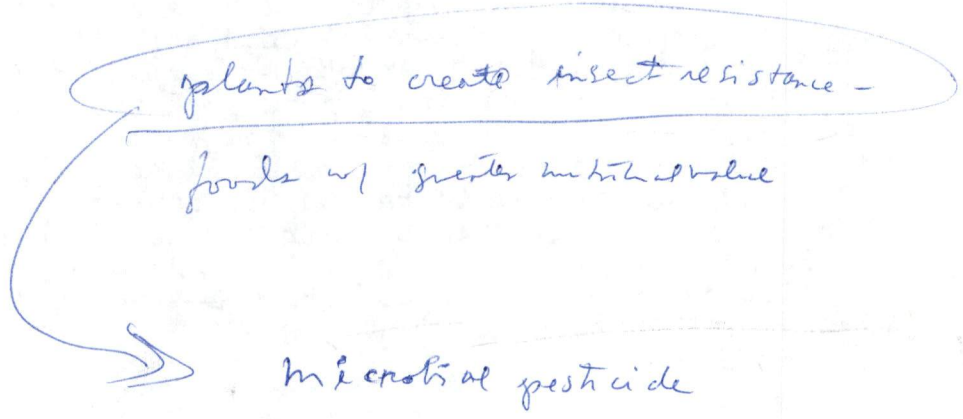 plants to create insect resistance -
foods w/ greater nutritional value
microbial pesticide